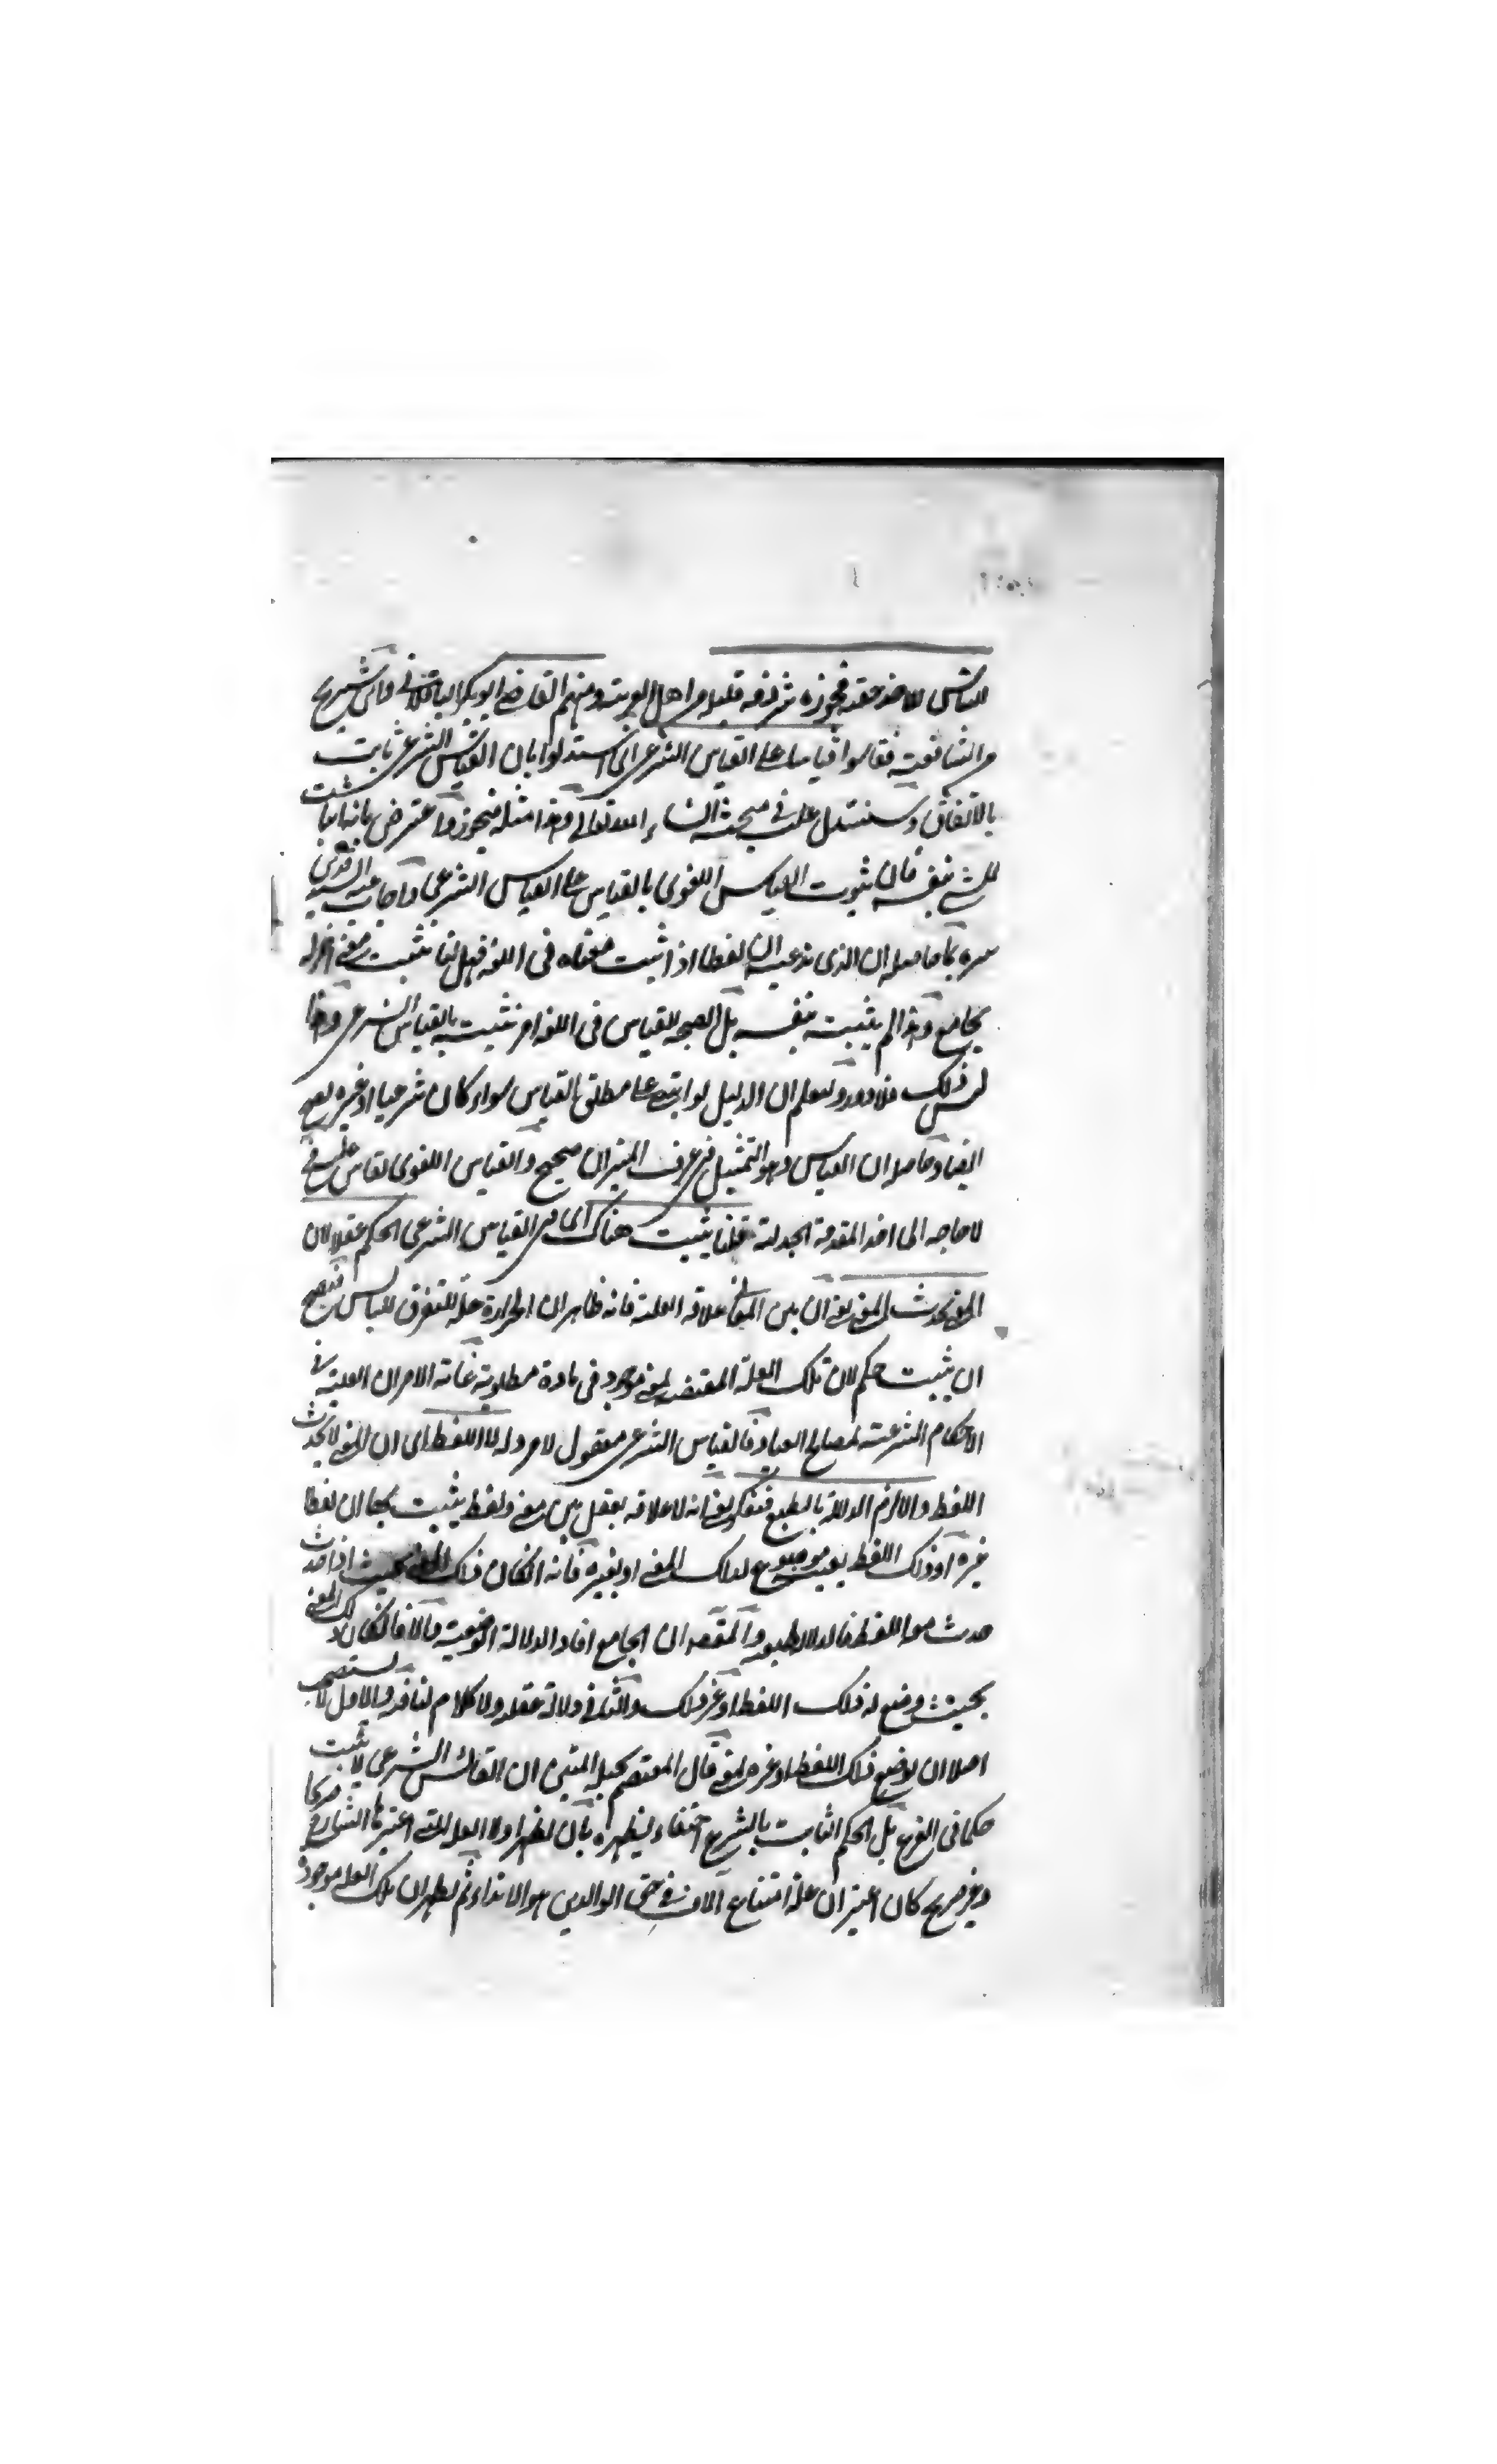 للنباش للاخذ خفية فجوزه شرذمة قليلة من اهل العربية ومنهم القاضي ابو بكر الباقلاني وابن شريح
من الشافعية فقاسوا قياسا على القياس الشرعي اي استدلوا بان القياس الشرعي ثابت
بالاتفاق وسنستدل عليه في مبحثه ان شاء الله تعالى وهذا مثله فيجوز واعترض بانه اثبات
للشيء بنفسه فان ثبوت القياس اللغوي بالقياس على القياس الشرعي واجاب عنه السيد قدس
سره بما حاصله ان الذي ندعيه ان لفظا اذا ثبت معناه في اللغة فهل لنا نثبت معنى اخر له
بجامع وهذا لم يثبت بنفسه بل الصحة للقياس في اللغة امر نثبته بالقياس الشرعي وهذا
ليس ذلك فلا دور وليعلم ان الدليل لو ابتني على مطلق القياس سواء كان شرعيا او غيره
ايضا وحاصله ان القياس وهو التمثيل في عرف الميزان صحيح والقياس اللغوي
لا حاجة الى اخذ المقدمة الجدلية قلنا يثبت هناك اي في القياس الشرعي الحكم عقلا لان
المعنى يحدث المعنى يعني ان بين المعاني علاقة العلية فانه ظاهر ان الحرارة علة للتفرق
ان يثبت حكم لان تلك العلة المقتضية لمعنى موجود في مادة مطلوبة غاية الامر ان العلية في
الاحكام الشرعية لمصالح العباد فالقياس الشرعي معقول لا مرد له لا اللفظ اي ان المعنى لا يحدث
اللفظ والا لزم الدلالة بالطبع فتفكر يعني انه لا علاقة بعقل بين معنى ولفظ يثبت بها ان لفظا
غيره او ذلك اللفظ بعينه موضوع لذلك المعنى او لغيره فانه ان كان ذلك المعنى بحيث اذا حدث
حدث معه اللفظ فالدلالة طبعية والمقصود ان الجامع افاد الدلالة الوضعية والا فان كان ذلك المعنى
بحيث وضع له ذلك اللفظ او غير ذلك والثاني دلالة عقلية ولا كلام لنا فيه والاول لا
اصلا ان يوضع ذلك اللفظ او غيره لمعنى قال المعتصم بحبله المتين ان القائس الشرعي لا يثبت
حكما في الفرع بل الحكم الثابت بالشرع اختفاء يظهره بان يظهر اولا العلة التي اعتبرها الشارع صريحا
وغير صريح كان اعتبر ان علة امتناع الاف في حق الوالدين هو الايذاء ثم يظهر ان تلك العلة موجودة